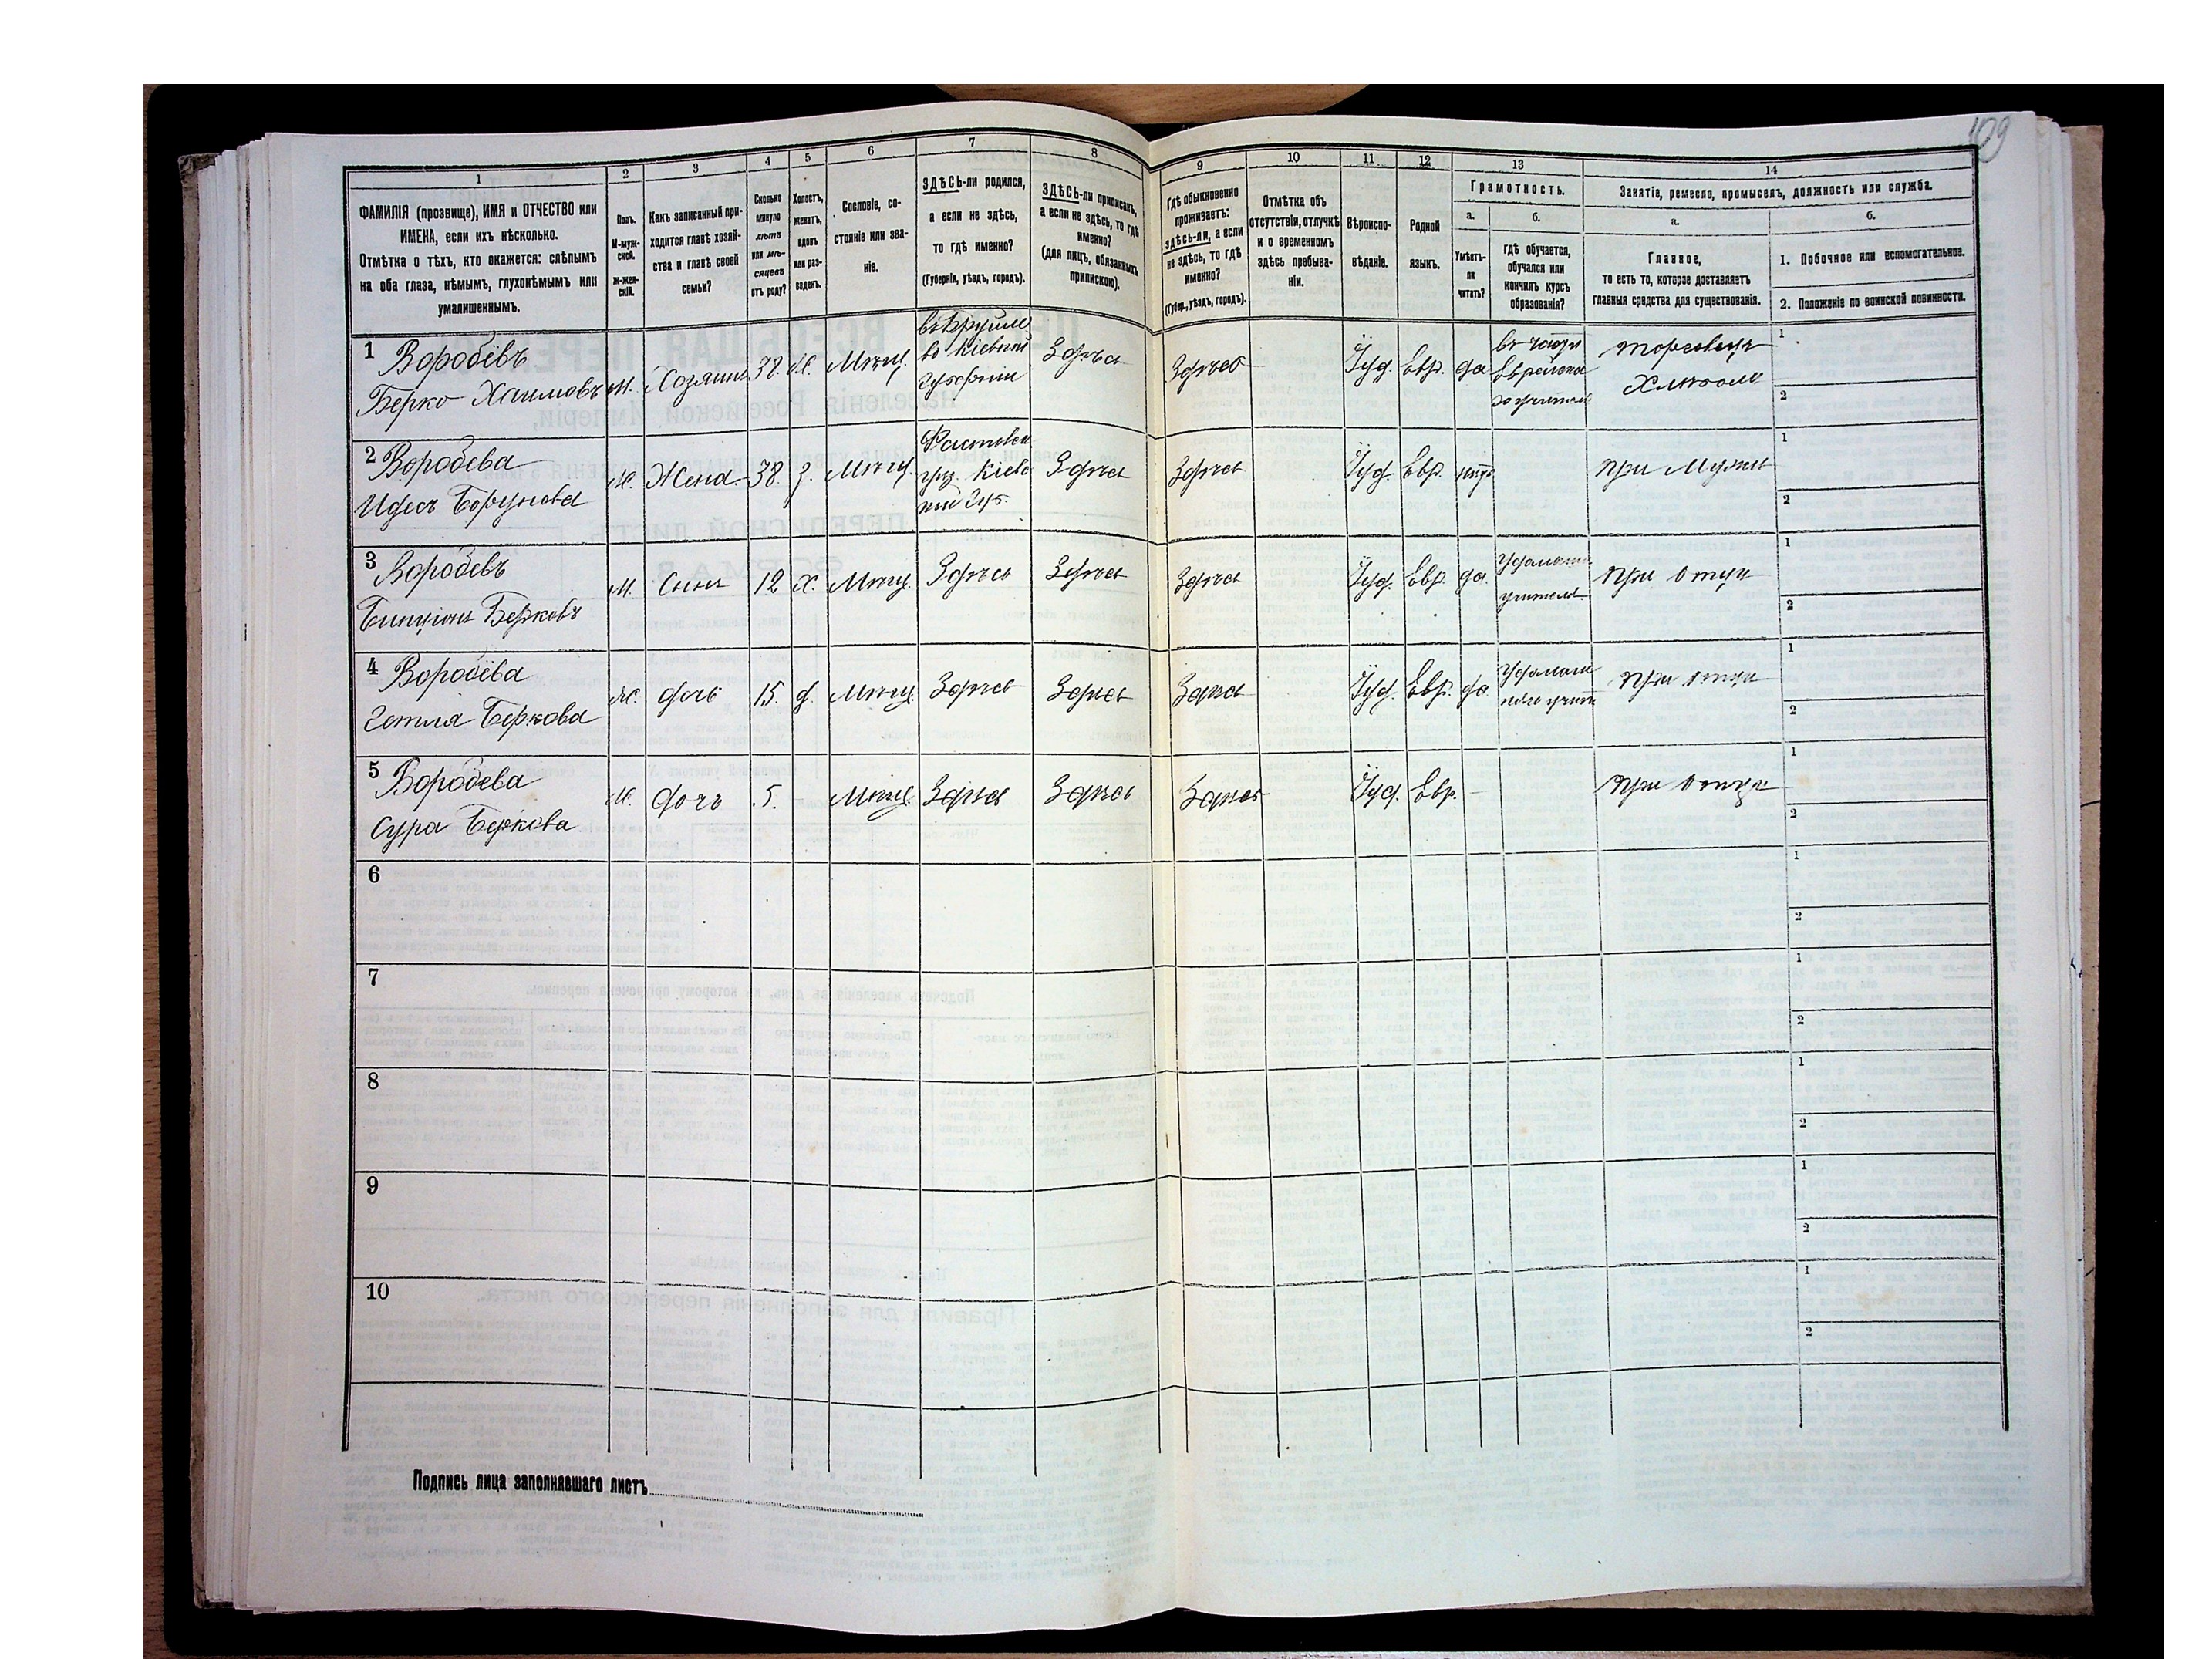 109
1 2 3 4 5 6 7 8 9 10 11 12 13 14
ФАМИЛІЯ (прозвище), ИМЯ и ОТЧЕСТВО или
ИМЕНА, если ихъ нѣсколько.
Отмѣтка о тѣхъ, кто окажется: слѣпымъ
на оба глаза, нѣмымъ, глухонѣмымъ или
умалишеннымъ.
Полъ.
М-муж-
ской.
Ж-жен-
скій.
Какъ записанный при-
ходится главѣ хозяй-
ства и главѣ своей
семьи?
Сколько
минуло
лѣтъ
или мѣ-
сяцевъ
отъ роду?
Холостъ,
женатъ,
вдовъ
или раз-
веденъ.
Сословіе, со-
стояніе или зва-
ніе.
ЗДѢСЬ-ли родился,
а если не здѣсь,
то гдѣ именно?
(Губернія, уѣздъ, городъ).
ЗДѢСЬ-ли приписанъ,
а если не здѣсь, то гдѣ
именно?
(для лицъ, обязанныхъ
припискою).
Гдѣ обыкновенно
проживаетъ:
здѣсь-ли, а если
не здѣсь, то гдѣ
именно?
(Губер., уѣздъ, городъ).
Отмѣтка объ
отсутствіи, отлучкѣ
и о временномъ
здѣсь пребыва-
ніи.
Вѣроиспо-
вѣданіе.
Родной
языкъ.
Грамотность.
а.
Умѣетъ-
ли
читать?
б.
гдѣ обучается,
обучался или
кончилъ курсъ
образованія?
Занятіе, ремесло, промыселъ, должность или служба.
а.
Главное,
то есть то, которое доставляетъ
главныя средства для существованія.
б.
1. Побочное или вспомогательное.
2. Положеніе по воинской повинности.
1 Воробѣвъ
Берко Хаимовъ
М. Хозяинъ 38. Ж. Мѣщ.
Кіевской
Губерніи
Здѣсь Здѣсь Іуд. Евр. да
Еврейска
торговецъ
Хлѣбомъ
1
2
2 Воробева
Идесъ
Ж. Жена 38. З. Мѣщ.
Кіевс
Губ.
Здѣсь Здѣсь Іуд. Евр. нѣтъ
При Мужѣ
1
2
3 Воробевъ
Бенціонъ Берковъ
М. Сынъ 12 Х. Мѣщ. Здѣсь Здѣсь Здѣсь Іуд. Евр. да.
учителя
При Отцѣ
1
2
4 Воробева
Беркова
Ж. дочь 15. д. Мѣщ. Здѣсь Здѣсь Здѣсь Іуд. Евр. да.
При Отцѣ
1
2
5 Воробева
Сура Беркова
Ж. дочь 5. Мѣщ. Здѣсь Здѣсь Здѣсь Іуд. Евр. —
При Отцѣ
1
2
6
1
2
7
1
2
8
1
2
9
1
2
10
1
2
Подпись лица заполнявшаго листъ